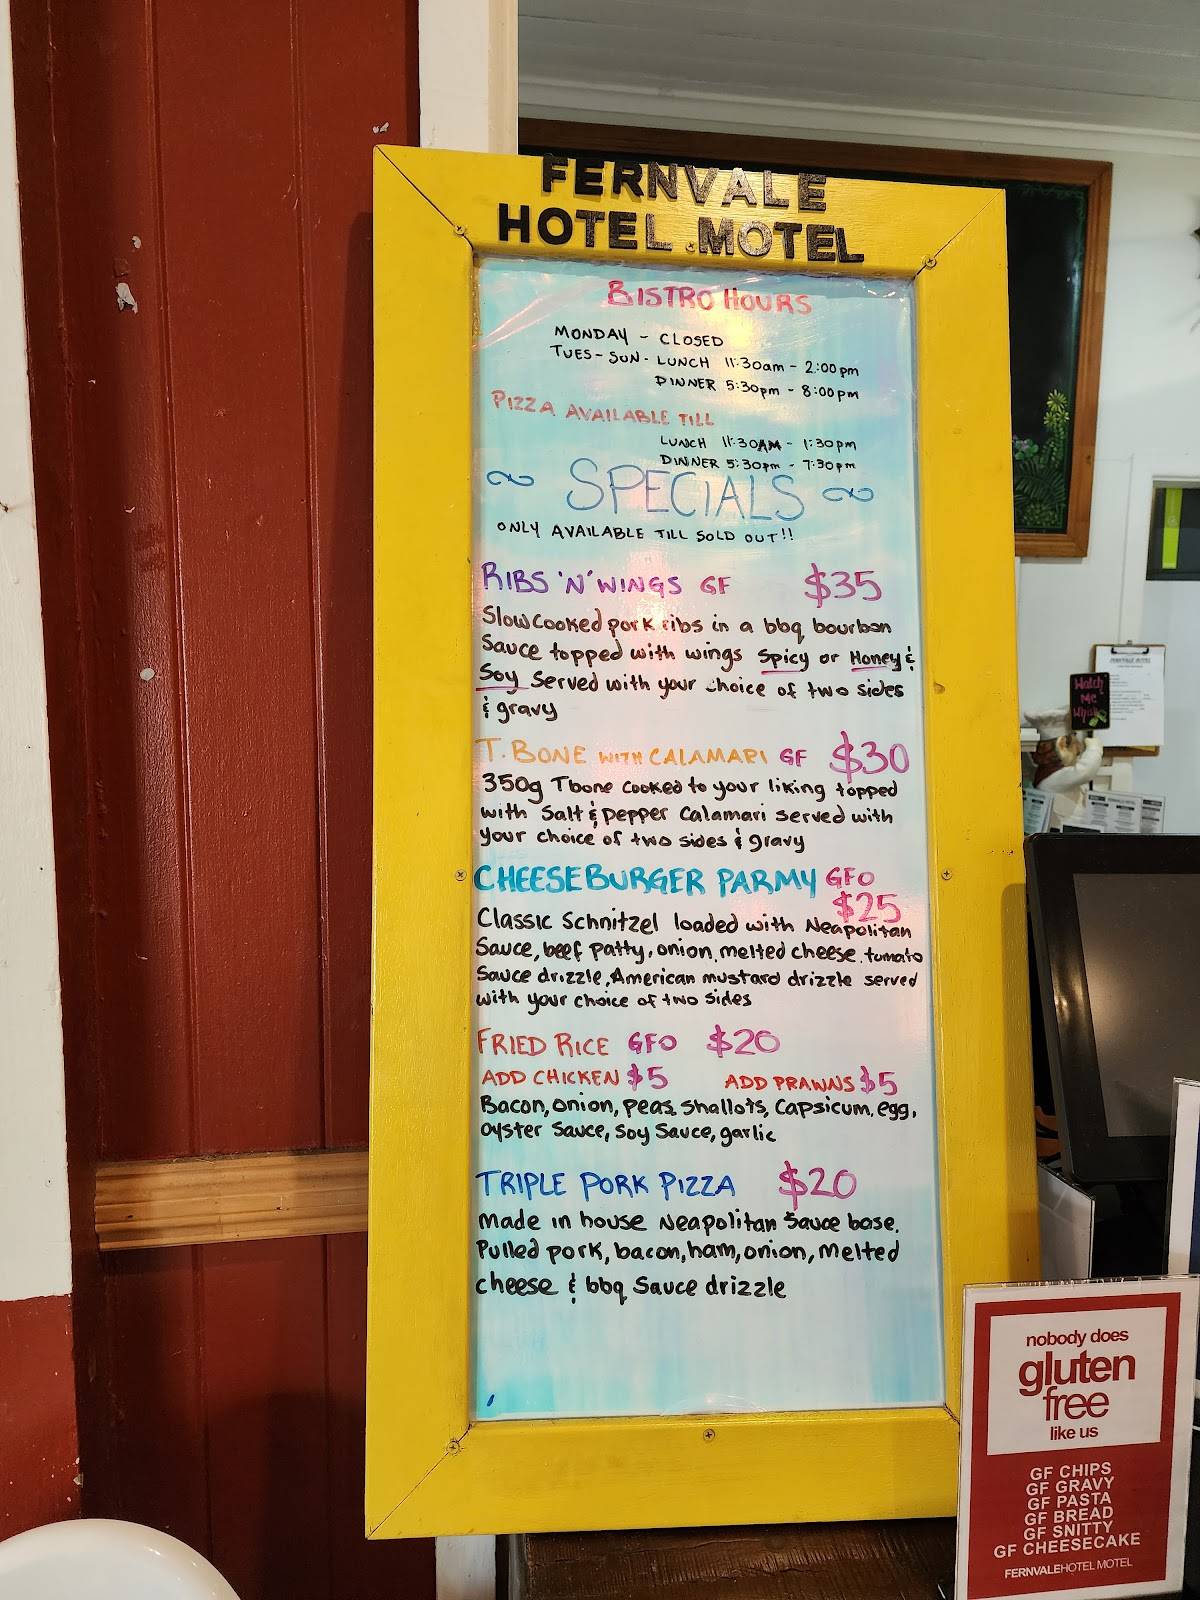 FERNVALE
HOTEL MOTEL
BISTRO HOURS
MONDAY - CLOSED
TUES - SUN - LUNCH 11:30am - 2:00pm
DINNER 5:30pm - 8:00pm
PIZZA AVAILABLE TILL
LUNCH 11:30AM - 1:30pm
DINNER 5:30pm - 7:30pm
SPECIALS
ONLY AVAILABLE TILL SOLD OUT!!
RIBS 'N' WINGS GF $35
Slowcooked pork ribs in a bbq bourbon
Sauce topped with wings Spicy or Honey &
Soy Served with your choice of two sides
& gravy
T.BONE WITH CALAMARI GF $30
350g Tbone cooked to your liking topped
with Salt & pepper Calamari served with
your choice of two sides & gravy
CHEESEBURGER PARMY GFO
$25
Classic Schnitzel loaded with Neapolitan
Sauce, beef patty, onion, melted cheese, tomato
Sauce drizzle, American mustard drizzle served
with your choice of two sides
FRIED RICE GFO $20
ADD CHICKEN $5 ADD PRAWNS $5
Bacon, onion, peas, shallots, capsicum, egg,
oyster Sauce, Soy Sauce, garlic
TRIPLE PORK PIZZA $20
made in house Neapolitan Sauce base,
Pulled pork, bacon, ham, onion, melted
cheese & bbq Sauce drizzle
Watch
Me
FERNVALE HOTEL
nobody does
gluten
free
like us
GF CHIPS
GF GRAVY
GF PASTA
GF BREAD
GF SNITTY
GF CHEESECAKE
FERNVALEHOTEL MOTEL